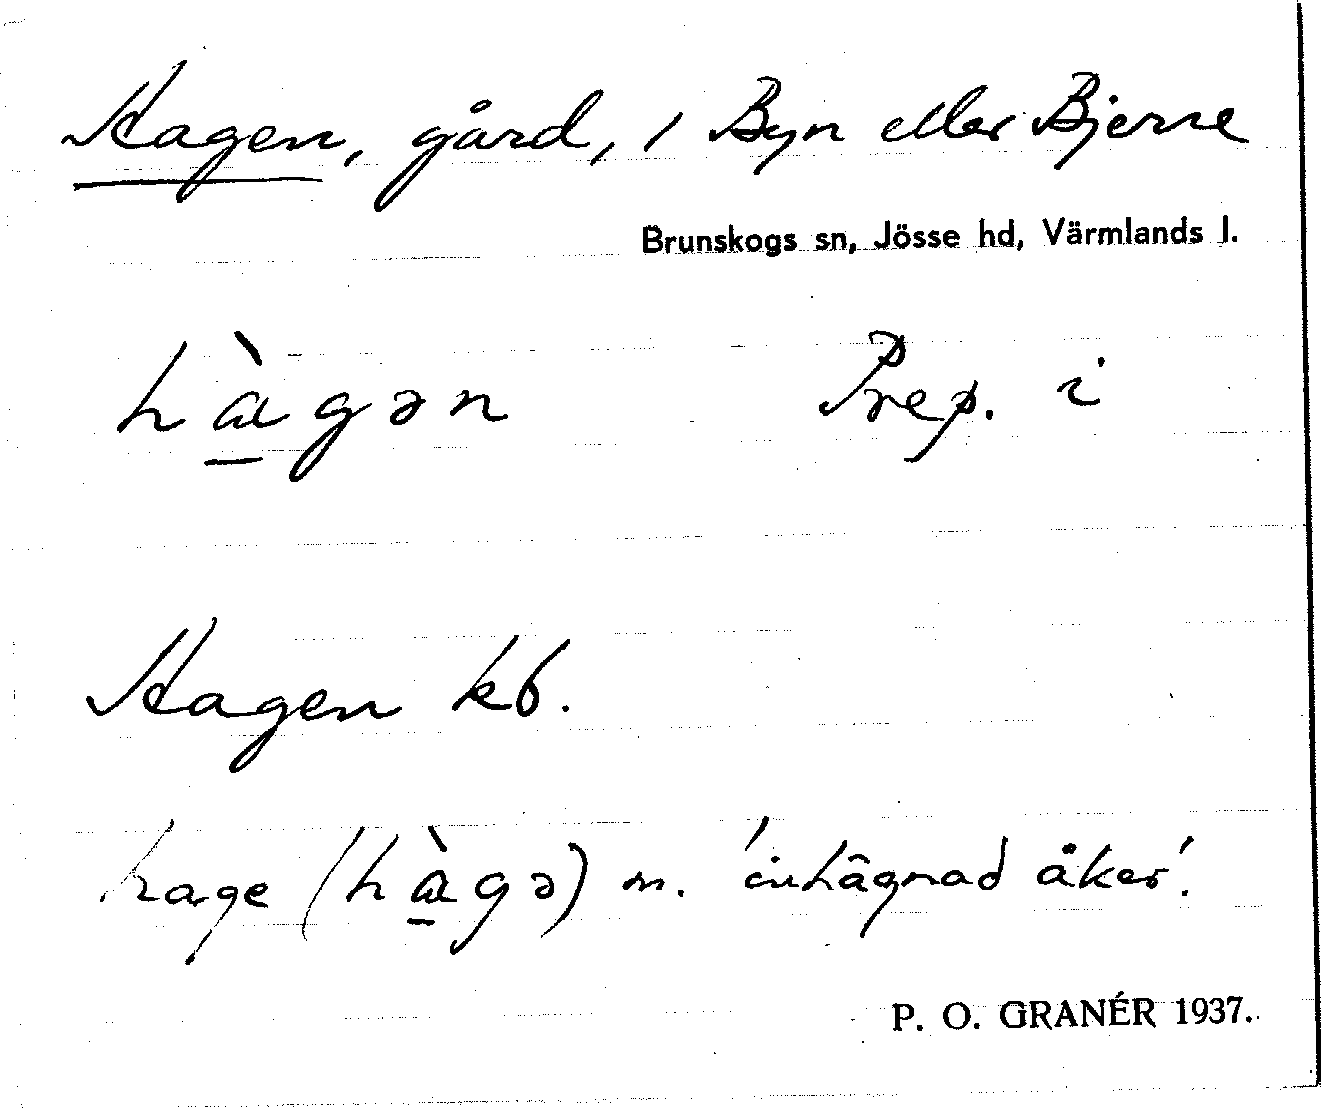 Hagen, gård, i Byn eller Bjerne
Brunskogs sn, Jösse hd, Värmlands l.
hàgən Prep. i
Hagen kb.
hage (hàgə) m. 'inhägnad åker'.
P. O. GRANÉR 1937.